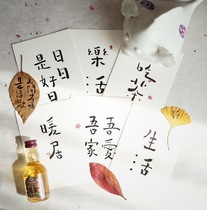 日日
是好日
樂活
吃茶
暖居
吾愛
吾家
生活